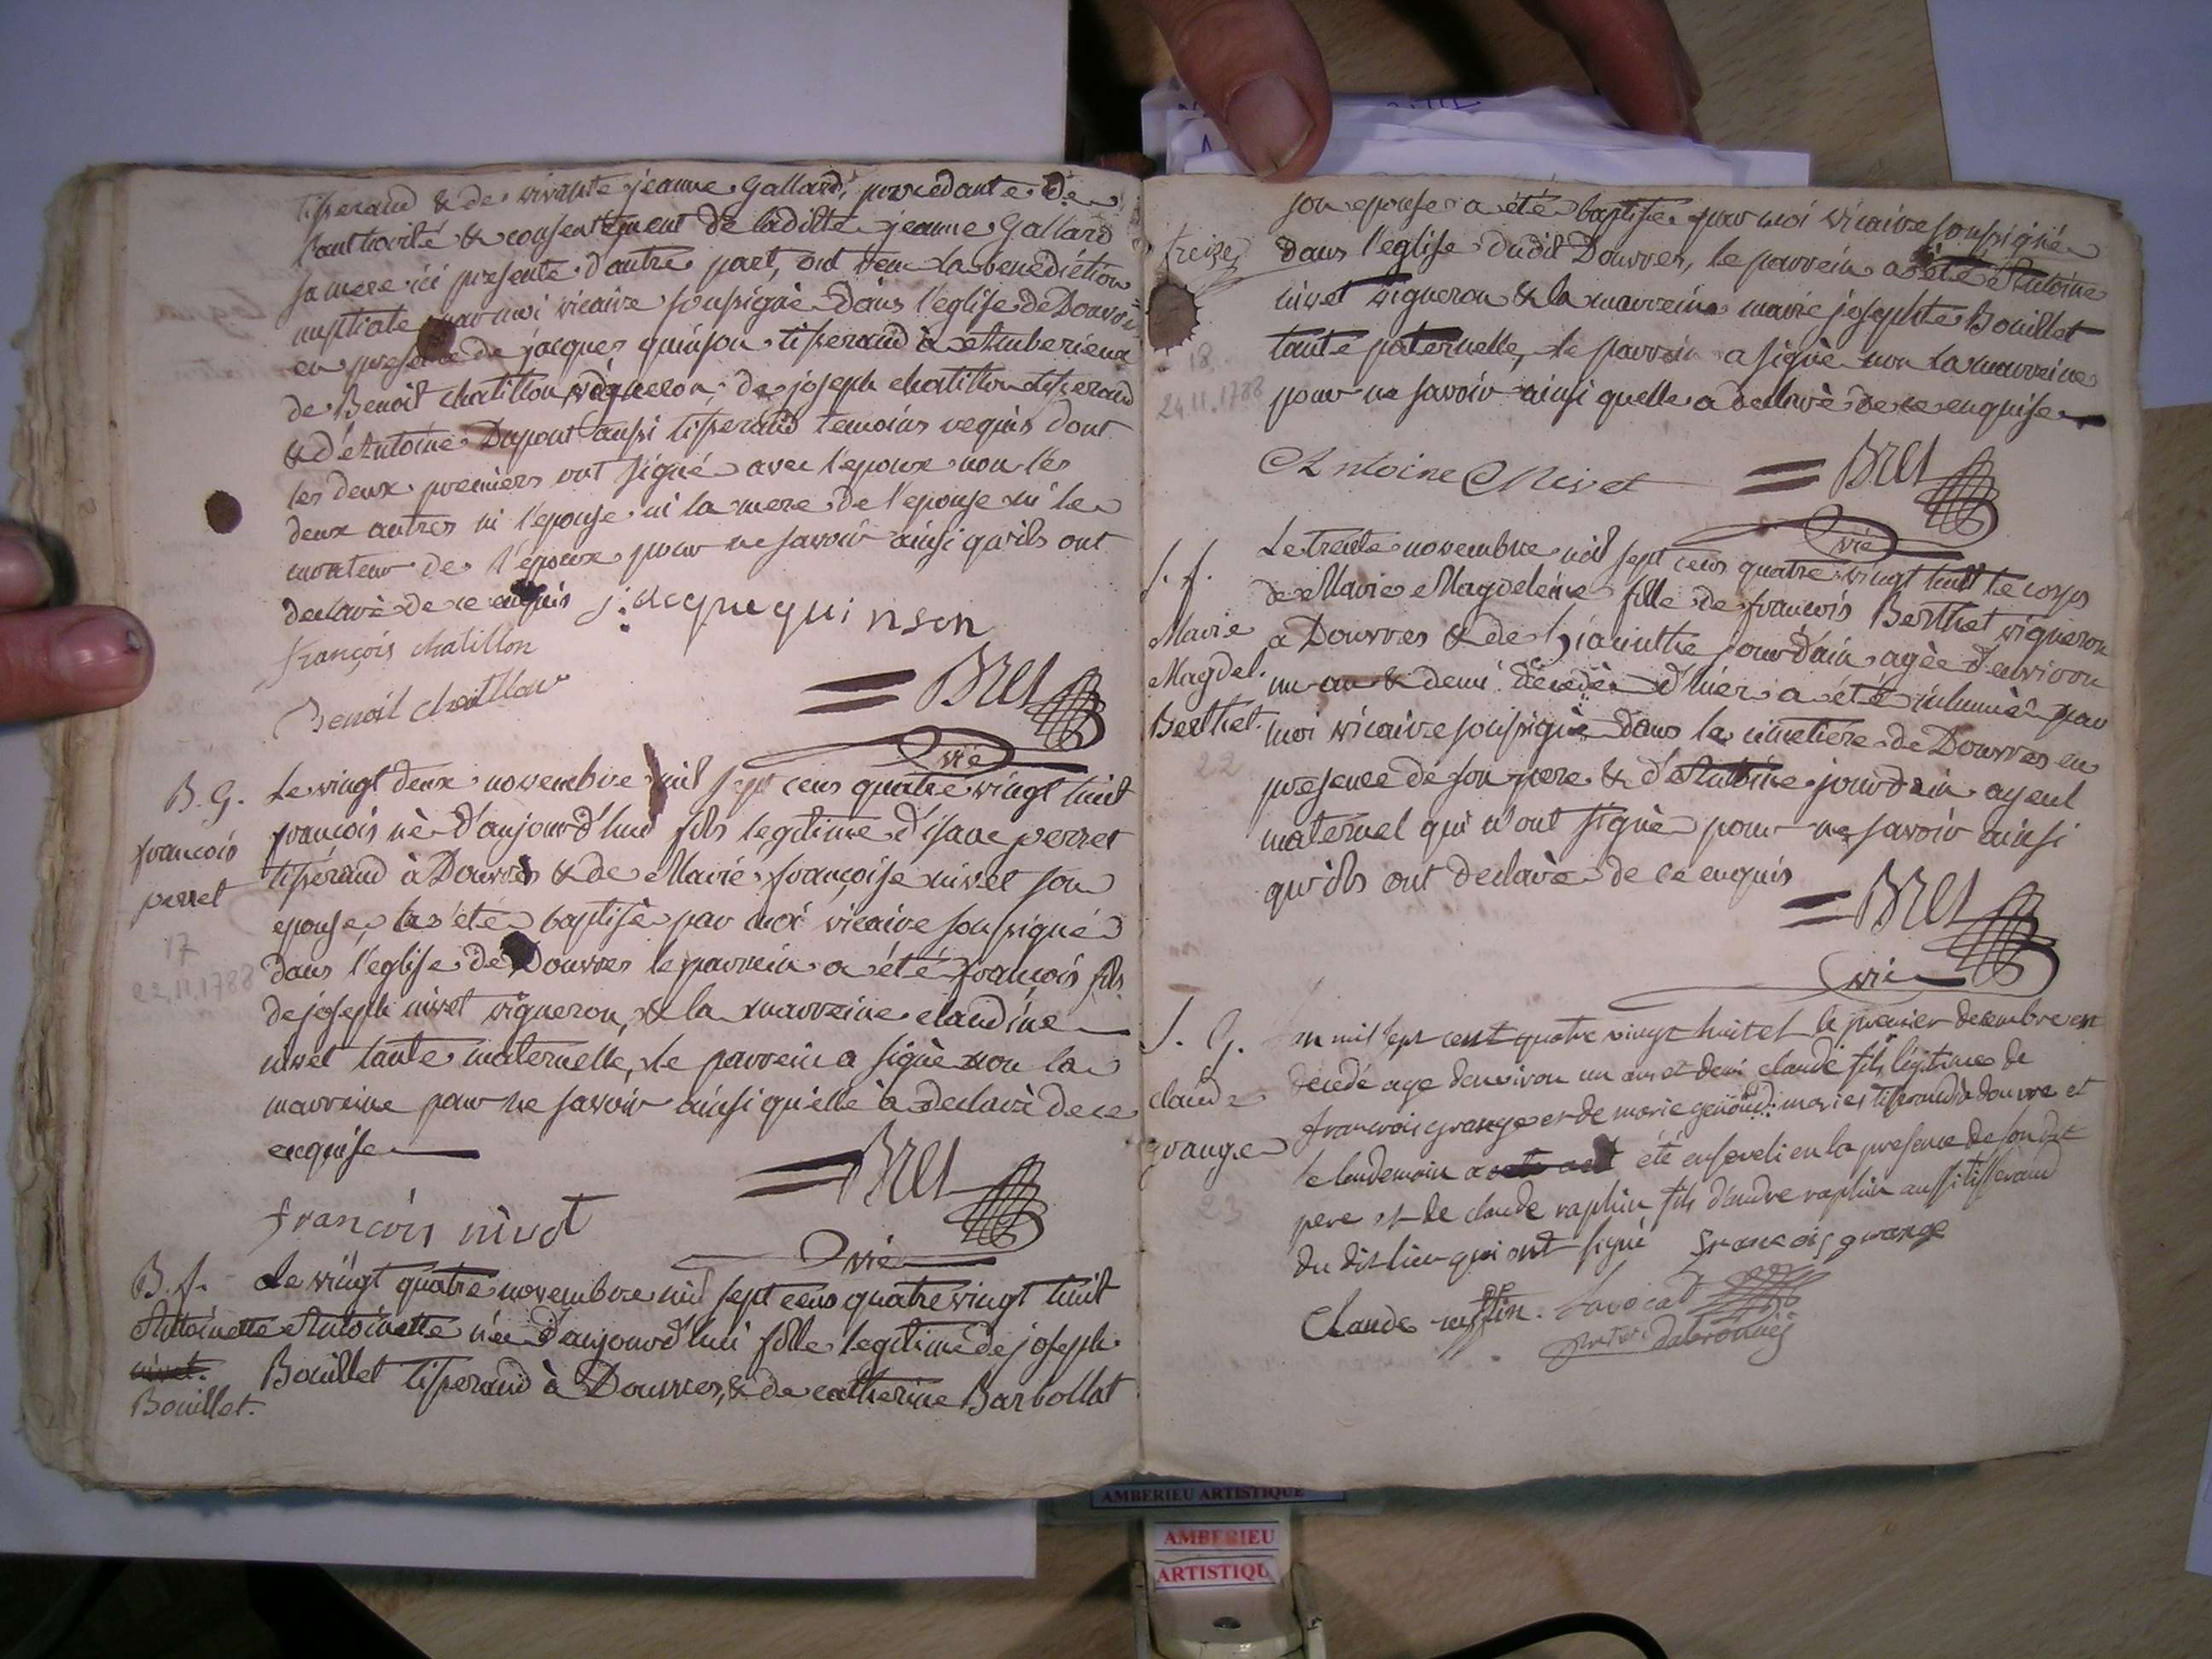 tisserand & de vivante jeanne Gallard, procedante de
l'authorité & consentement de ladite jeanne Gallard
sa mere ici presente d'autre part, ont reçu la benediction
nuptiale par moi vicaire soussigné dans l'eglise de Douvres
en presence de jacques quinson tisserand à Amberieux
de Benoit chatillon vigneron, de joseph chatillon tisserand
& d'Antoine Dupont aussi tisserand temoins requis dont
les deux premiers ont signé avec l'epoux non les
deux autres ni l'epouse ni la mere de l'epouse ni le
de l'époux pour ne savoir ainsi qu'ils ont
declaré de ce enquis j: acquequinson
françois chatillon
Benoit chatillon
= Bret
vic
B. G. Le vingt deux novembre mil sept cens quatre vingt huit
françois françois né d'aujourd'hui fils legitime d'isaac perret
perret tisserand à Douvres & de Marie françoise nivet son
epouse, a été baptisé par moi vicaire soussigné
17 dans l'eglise de Douvres le parrein a été françois fils
22.11.1788 de joseph nivet vigneron, & la marreine claudine
nivet tante maternelle, le parrein a signé non la
marreine pour ne savoir ainsi qu'elle a declaré de ce
enquise
= Bret
françois nivet
vic
B. f. Le vingt quatre novembre mil sept cens quatre vingt huit
Antoinette Antoinette née d'aujourd'hui fille legitime de joseph
nivet. Bouillet tisserand à Douvres, & de catherine Barbollat
Bouillet.
treize
son epouse a été baptisée par moi vicaire soussigné
dans l'eglise dudit Douvres, le parrein a été Antoine
nivet vigneron & la marreine marie josephte Bouillet
18 tante paternelle, le parrein a signé non la marreine
24.11.1788 pour ne savoir ainsi quelle a declaré de ce enquise
Antoine Nivet = Bret
vic
S. f. Le trente novembre mil sept cens quatre vingt huit le corps
de Marie Magdeleine fille de françois Berthet vigneron
Marie a Douvres & de hiacinthe jourdain agée d'environ
Magdel. un an & demi decedée d'hier a été inhumé par
Berthet. moi vicaire soussigné dans le cimetiere de Douvres en
22 presence de son pere & d'Antoine jourdain ayeul
maternel qui n'ont signé pour ne savoir ainsi
qu'ils ont declaré de ce enquis
= Bret
vic
S. G. en mil sept cent quatre vingt huit et le premier decembre est
claude decedé age denviron un an et demi claude fils légitime de
francois grange et de marie genoud mariés tisserand à douvre et
grange le landemain a été enseveli en la presence de son dit
23 pere et de claude raphin fils d'andre raphin aussi tisserand
du dit lieu qui ont signé francois grange
Claude
AMBERIEU ARTISTIQUE
AMBERIEU
ARTISTIQU